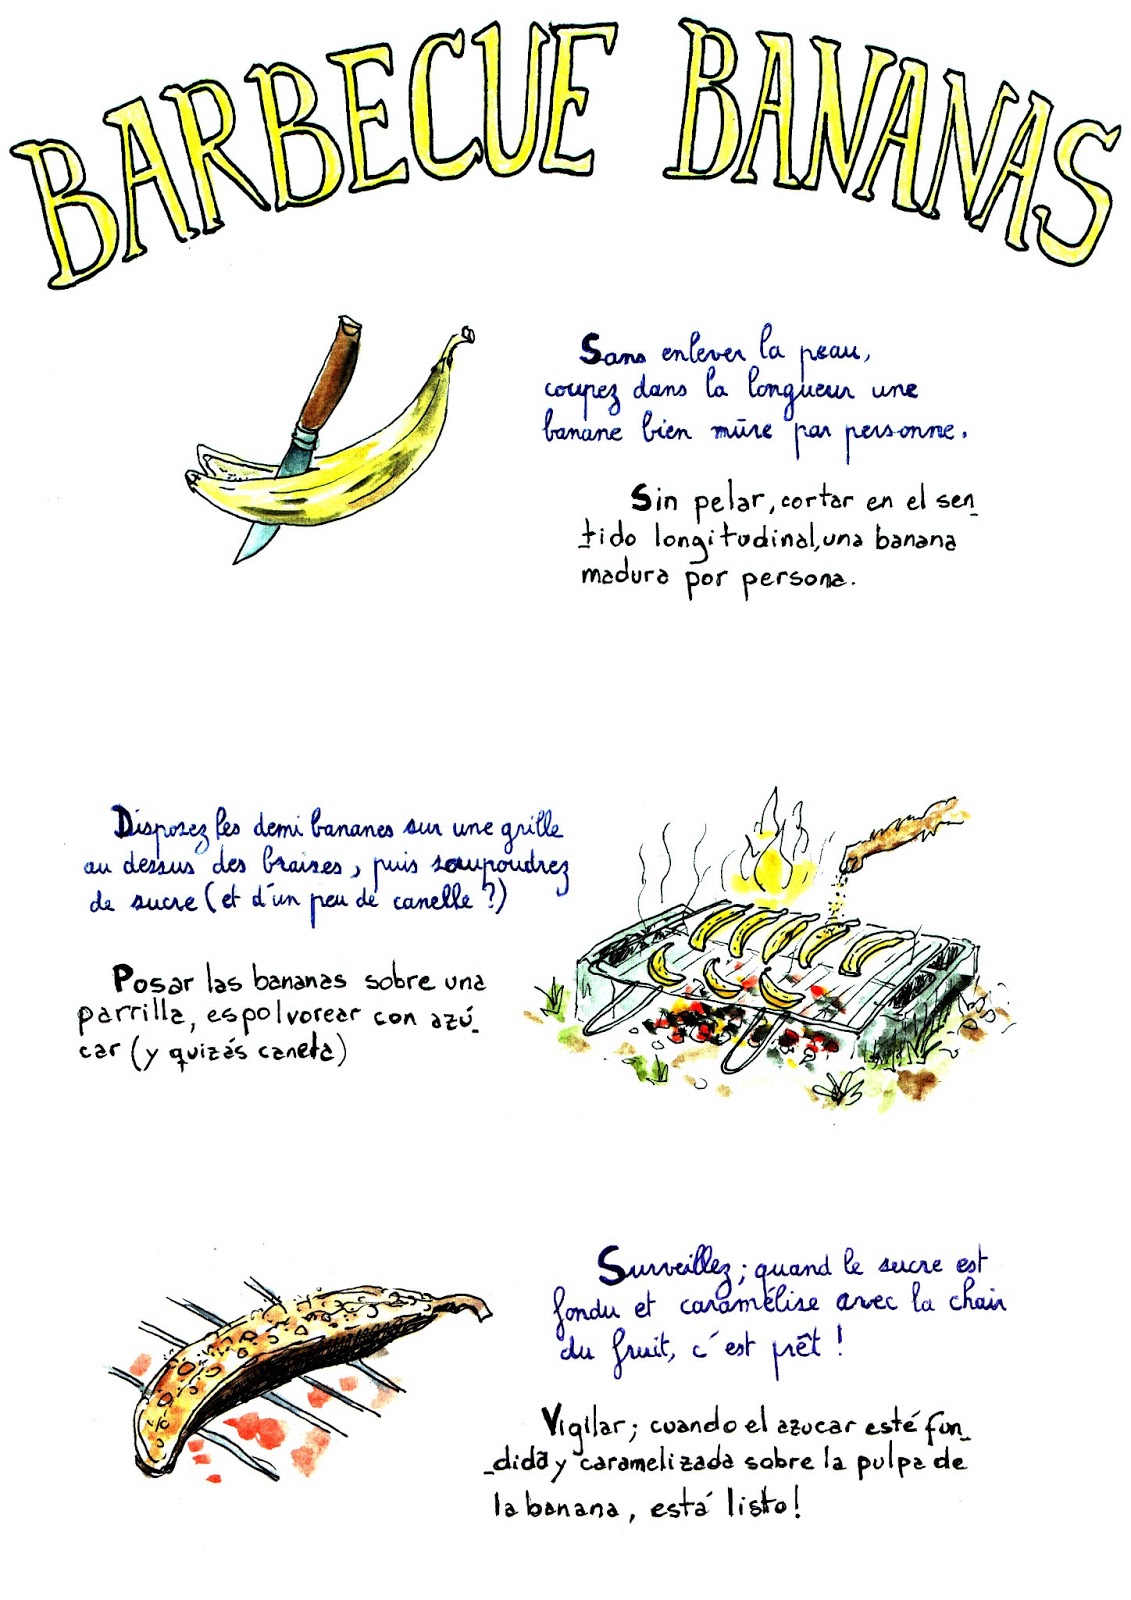 BARBECUE BANANAS
Sans enlever la peau,
coupez dans la longueur une
banane bien mûre par personne.
Sin pelar, cortar en el sen_
tido longitudinal, una banana
madura por persona.
Disposez les demi bananes sur une grille
au dessus des braises, puis saupoudrez
de sucre (et d'un peu de canelle ?)
Posar las bananas sobre una
parrilla, espolvorear con azú_
car (y quizás canela)
Surveillez; quand le sucre est
fondu et caramélise avec la chair
du fruit, c'est prêt !
Vigilar; cuando el azucar esté fun_
_dida y caramelizada sobre la pulpa de
la banana, está listo!